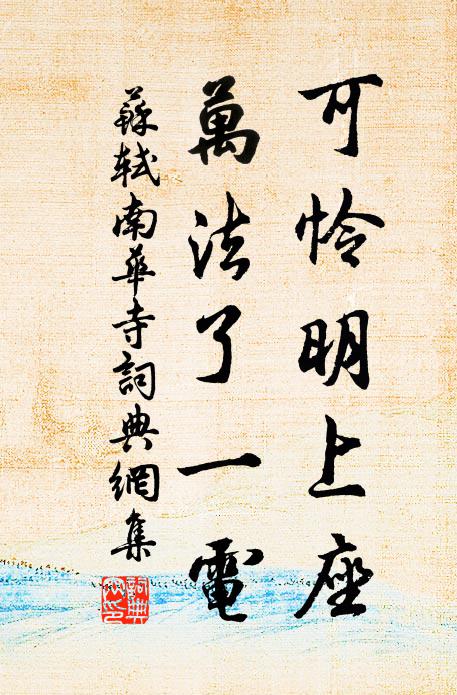 可怜明上座
萬法了一電
蘇軾南華寺詞典網集